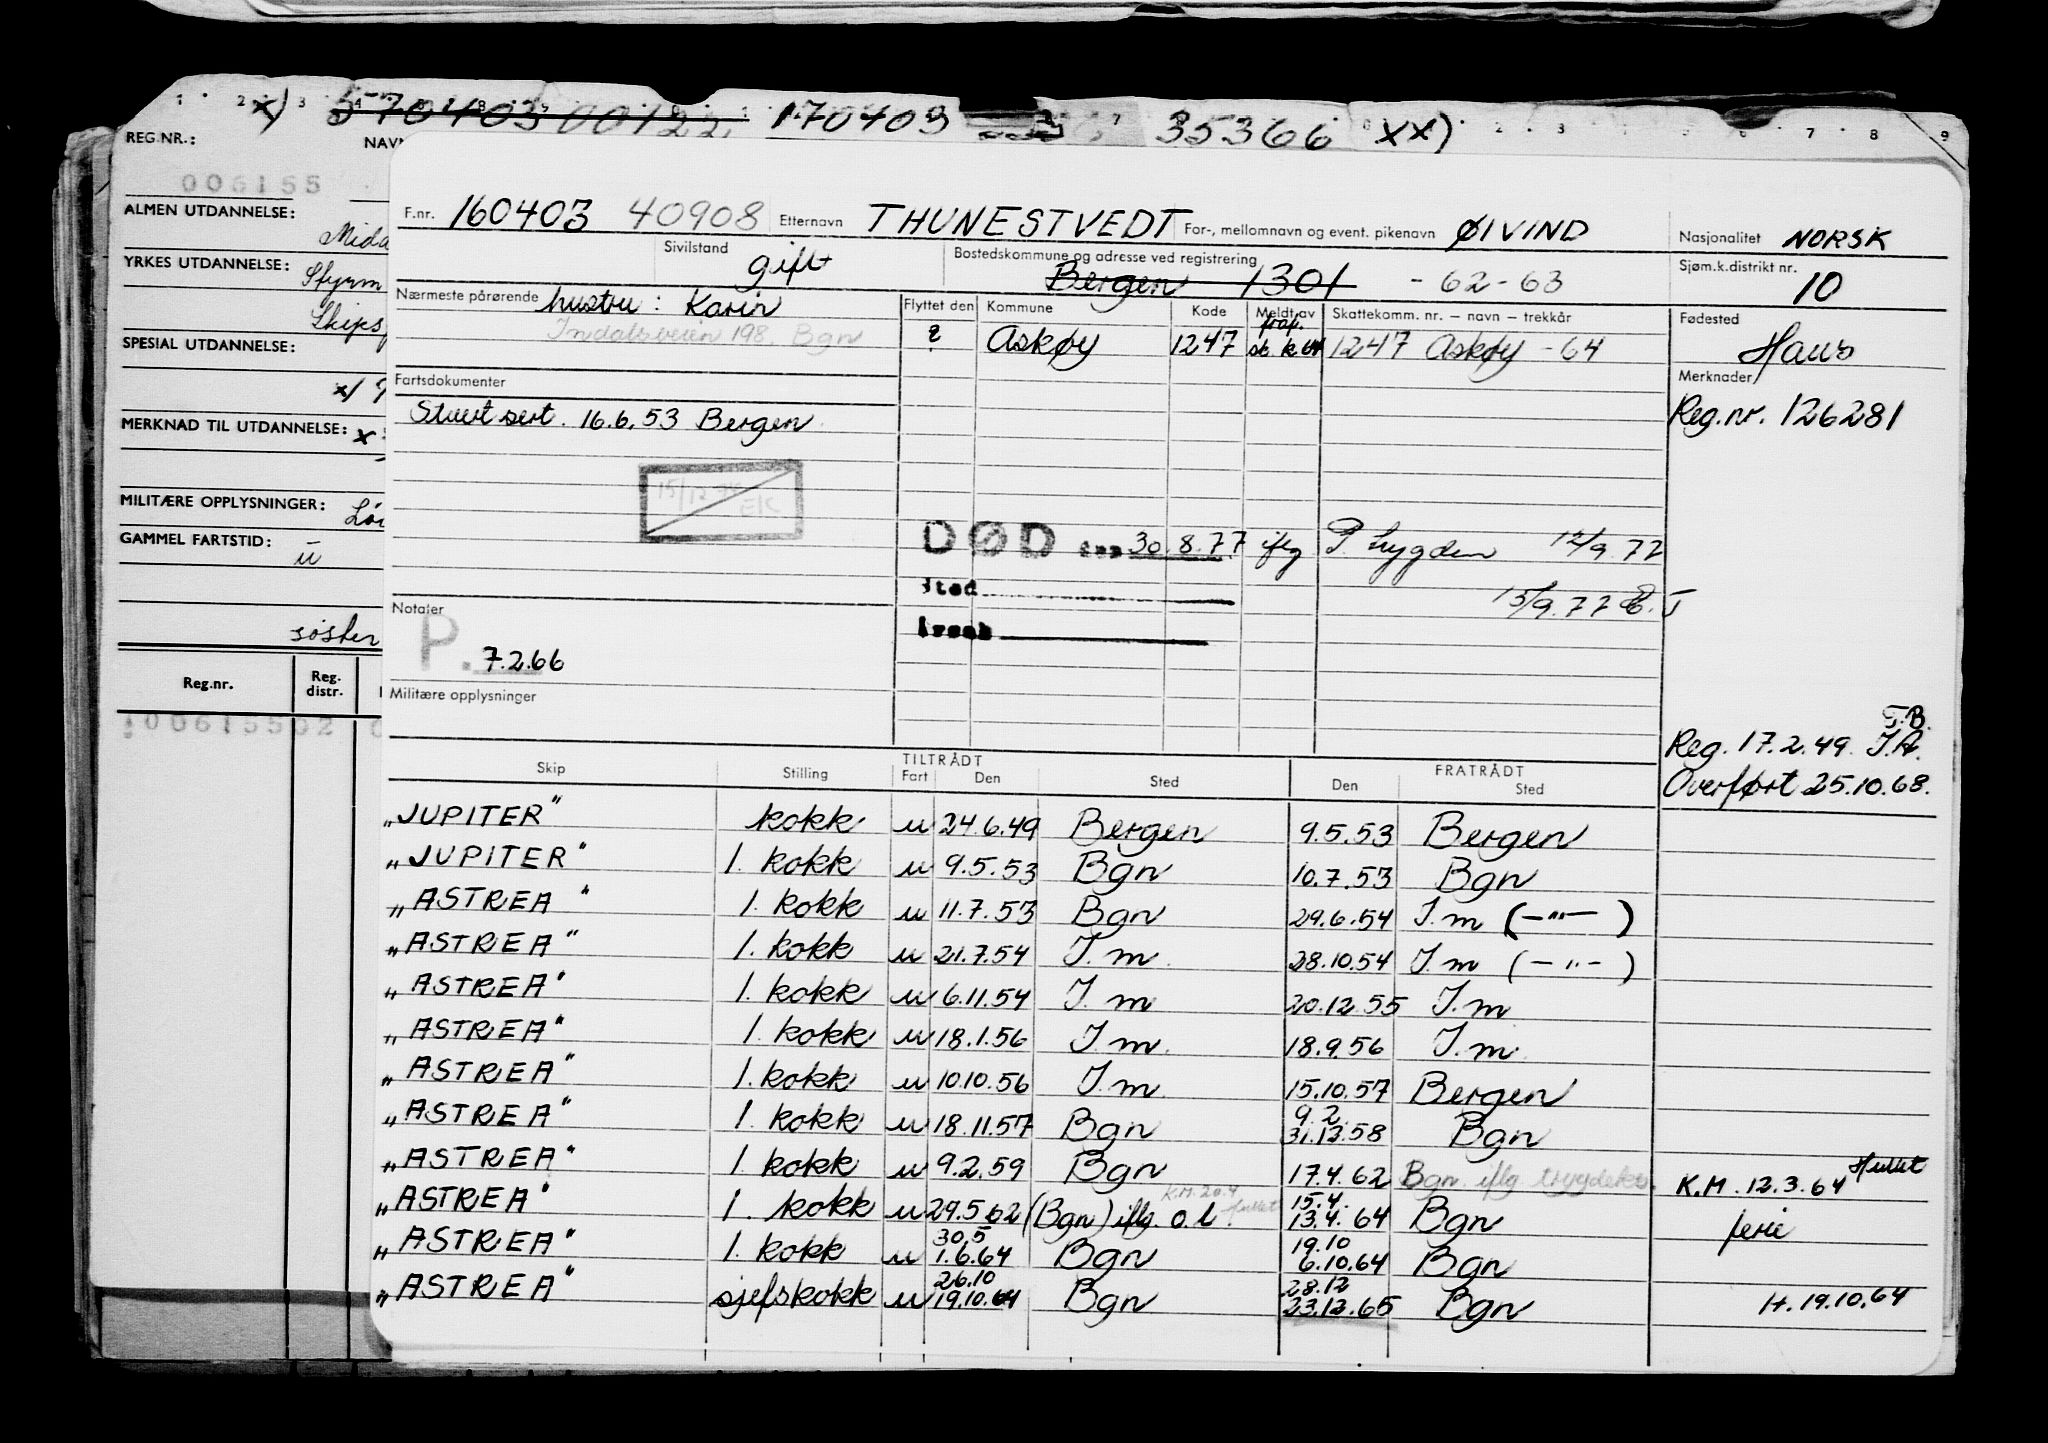 x) 570403 00122 170403 35366 xx)
REG.NR.:
006155
ALMEN UTDANNELSE:
YRKES UTDANNELSE:
SPESIAL UTDANNELSE:
MERKNAD TIL UTDANNELSE: x
MILITÆRE OPPLYSNINGER:
GAMMEL FARTSTID: u
søster
Reg.nr. Reg. distr.
100615502
F.nr. 160403 40908 Etternavn THUNESTVEDT For-, mellomnavn og event. pikenavn ØIVIND Nasjonalitet NORSK
Sivilstand gift Bostedskommune og adresse ved registrering Bergen 1301 - 62 - 63 Sjøm.k.distrikt nr. 10
Nærmeste pårørende hustru: Karin Flyttet den Kommune Kode Meldt av Skattekomm. nr. – navn – trekkår Fødested Haus
Indalsveien 198 Bgn ? Askøy 1247 1247 Askøy - 64
Merknader
Fartsdokumenter
Reg.nr. 126281
Stuert sert. 16.6.53 Bergen
15/12 EK
DØD den 30.8.77 iflg P. trygden 12/9.77
sted 15/9.77
årsak
Notater
P. 7.2.66
Militære opplysninger
T.B.
Reg. 17.2.49. J.A.
Overført 25.10.68.
TILTRÅDT FRATRÅDT
Skip Stilling Fart Den Sted Den Sted
„JUPITER" kokk u 24.6.49 Bergen 9.5.53 Bergen
„JUPITER" 1. kokk u 9.5.53 Bgn 10.7.53 Bgn
„ASTREA" 1. kokk u 11.7.53 Bgn 29.6.54 I.m (—"—)
„ASTREA" 1. kokk u 21.7.54 I.m. 28.10.54 I.m (—"—)
„ASTREA" 1. kokk u 6.11.54 I.m 20.12.55 I.m
„ASTREA" 1. kokk u 18.1.56 I.m. 18.9.56 I.m.
„ASTREA" 1. kokk u 10.10.56 I.m 15.10.57 Bergen
9.2.
„ASTREA" 1. kokk u 18.11.57 Bgn 31.12.58 Bgn
„ASTREA" 1. kokk u 9.2.59 Bgn 17.4.62 Bgn iflg trygdekt. K.M. 12.3.64 Hullet
K.M. 20.4 hullet 15.4.
„ASTREA" 1. kokk u 29.5.62 (Bgn) iflg. o.l 13.4.64 Bgn ferie
30.5 19.10
„ASTREA" 1. kokk u 1.6.64 Bgn 6.10.64 Bgn
26.10 28.12
„ASTREA" sjefskokk u 19.10.64 Bgn 23.12.65 Bgn H. 19.10.64